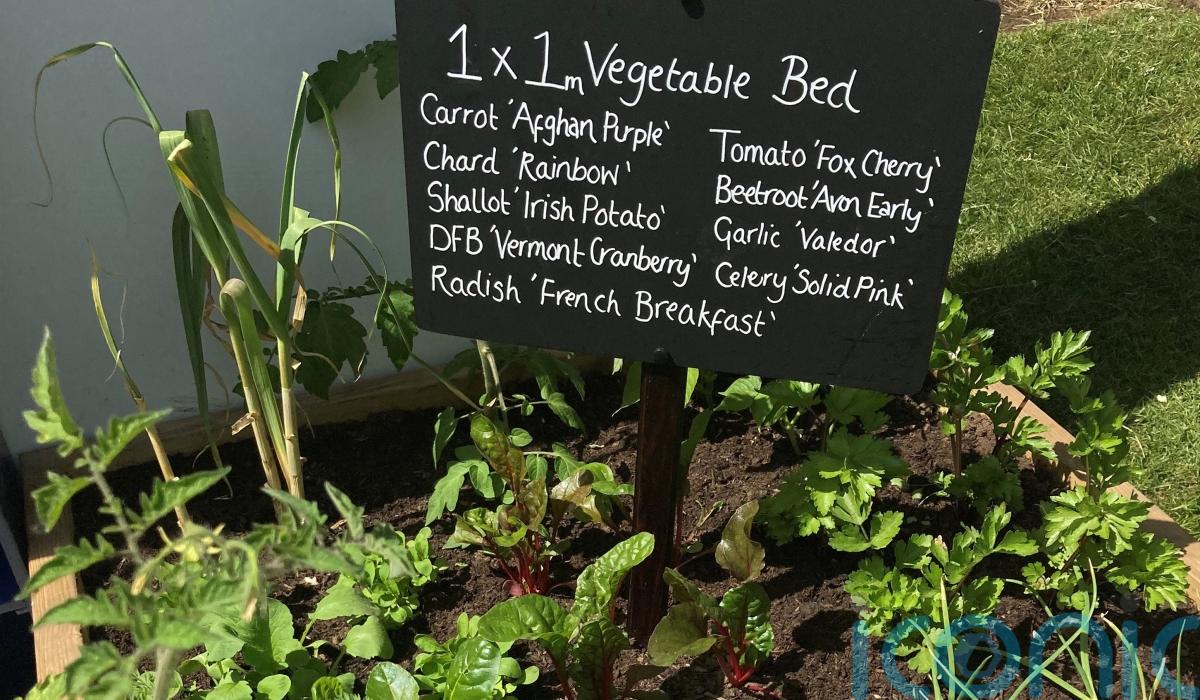 1 x 1m Vegetable Bed
Carrot 'Afghan Purple'
Chard 'Rainbow'
Shallot 'Irish Potato'
DFB 'Vermont Cranberry'
Radish 'French Breakfast'
Tomato 'Fox Cherry'
Beetroot 'Avon Early'
Garlic 'Valedor'
Celery 'Solid Pink'
iconic